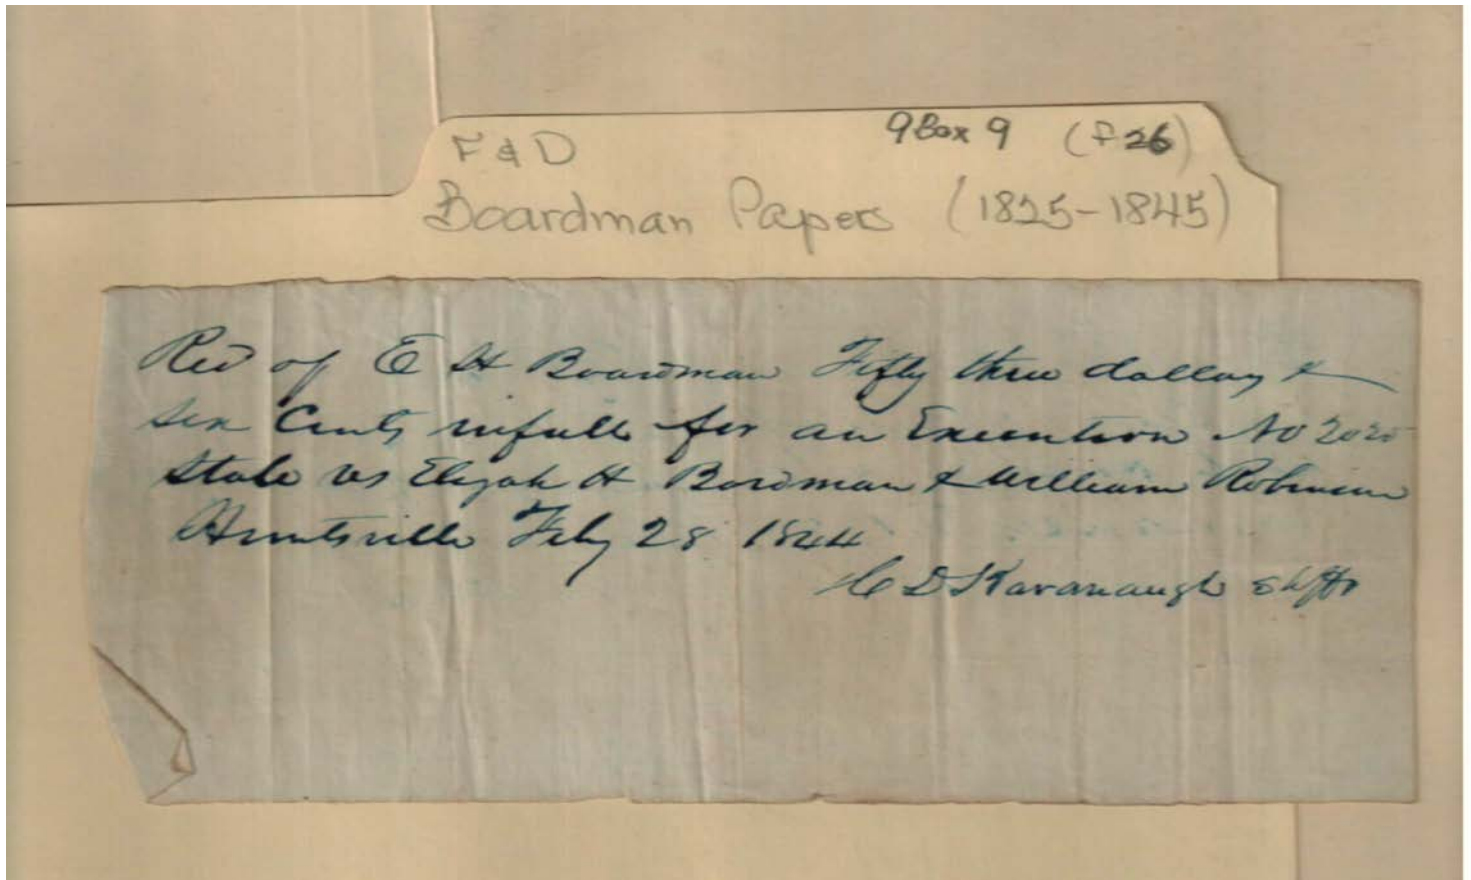 F & D
9 Box 9 (F 26)
Boardman Papers (1825-1845)
Recd of E H Boardman Fifty three dollars &
six Cents infull for an Execution No 2020
State vs Elijah H Bordman & William Robinson
Huntsville Feby 28 1844
C D Kavanaugh Shff